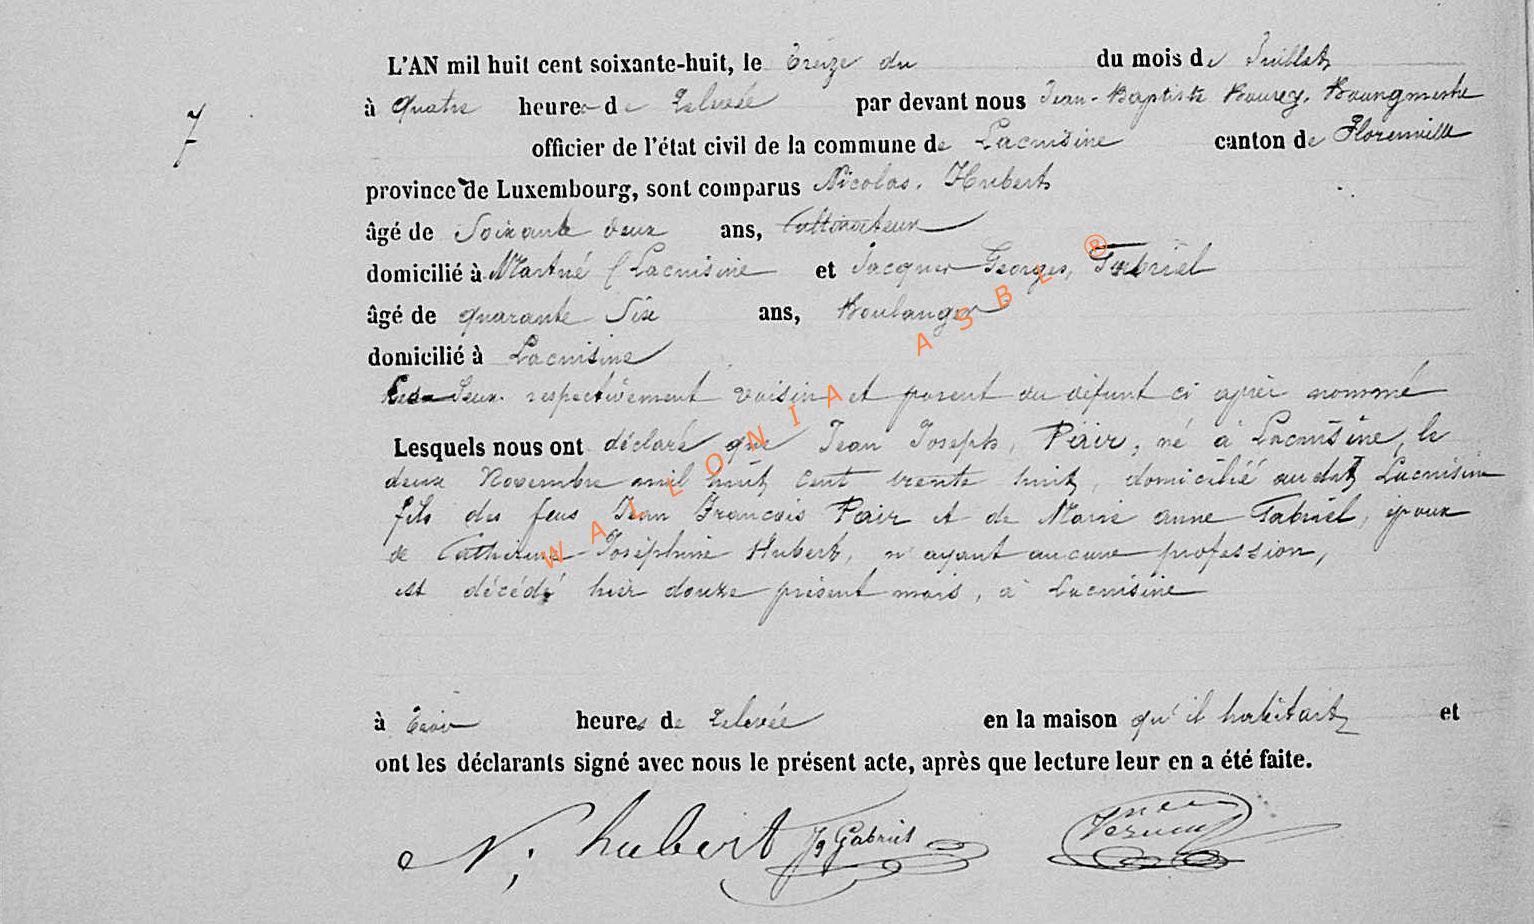 L'AN mil huit cent soixante-huit, le treize du du mois de Juillet
7 à quatre heures de Relevée par devant nous Jean-Baptiste Bourgmestre
officier de l'état civil de la commune de Lacuisine canton de Florenville
province de Luxembourg, sont comparus Nicolas. Hubert
âgé de Soixante deux ans, Cultivateur
domicilié à Martué / Lacuisine et Jacques Georges, Gabriel
âgé de quarante Six ans, Boulanger
domicilié à Lacuisine
Les deux respectivement voisin et parent du défunt ci après nommé
Lesquels nous ont déclaré que Jean Joseph, Pair, né à Lacuisine, le
deux Novembre mil huit cent trente huit, domicilié audit Lacuisine
fils des feus Jean Francois Pair et de Marie anne Gabriel, époux
de Catherine Joséphine Hubert, n'ayant aucune profession,
est décédé hier douze présent mois, à Lacuisine
à trois heures de Relevée en la maison qu'il habitait et
ont les déclarants signé avec nous le présent acte, après que lecture leur en a été faite.
N; hubert Jg Gabriel
WALLONIA ASBL ®